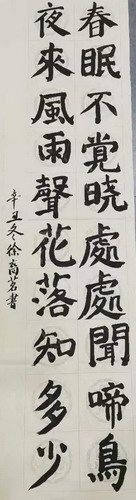 春眠不觉晓處處聞啼鳥
夜來風雨聲花落知多少
辛丑冬徐裔茗書